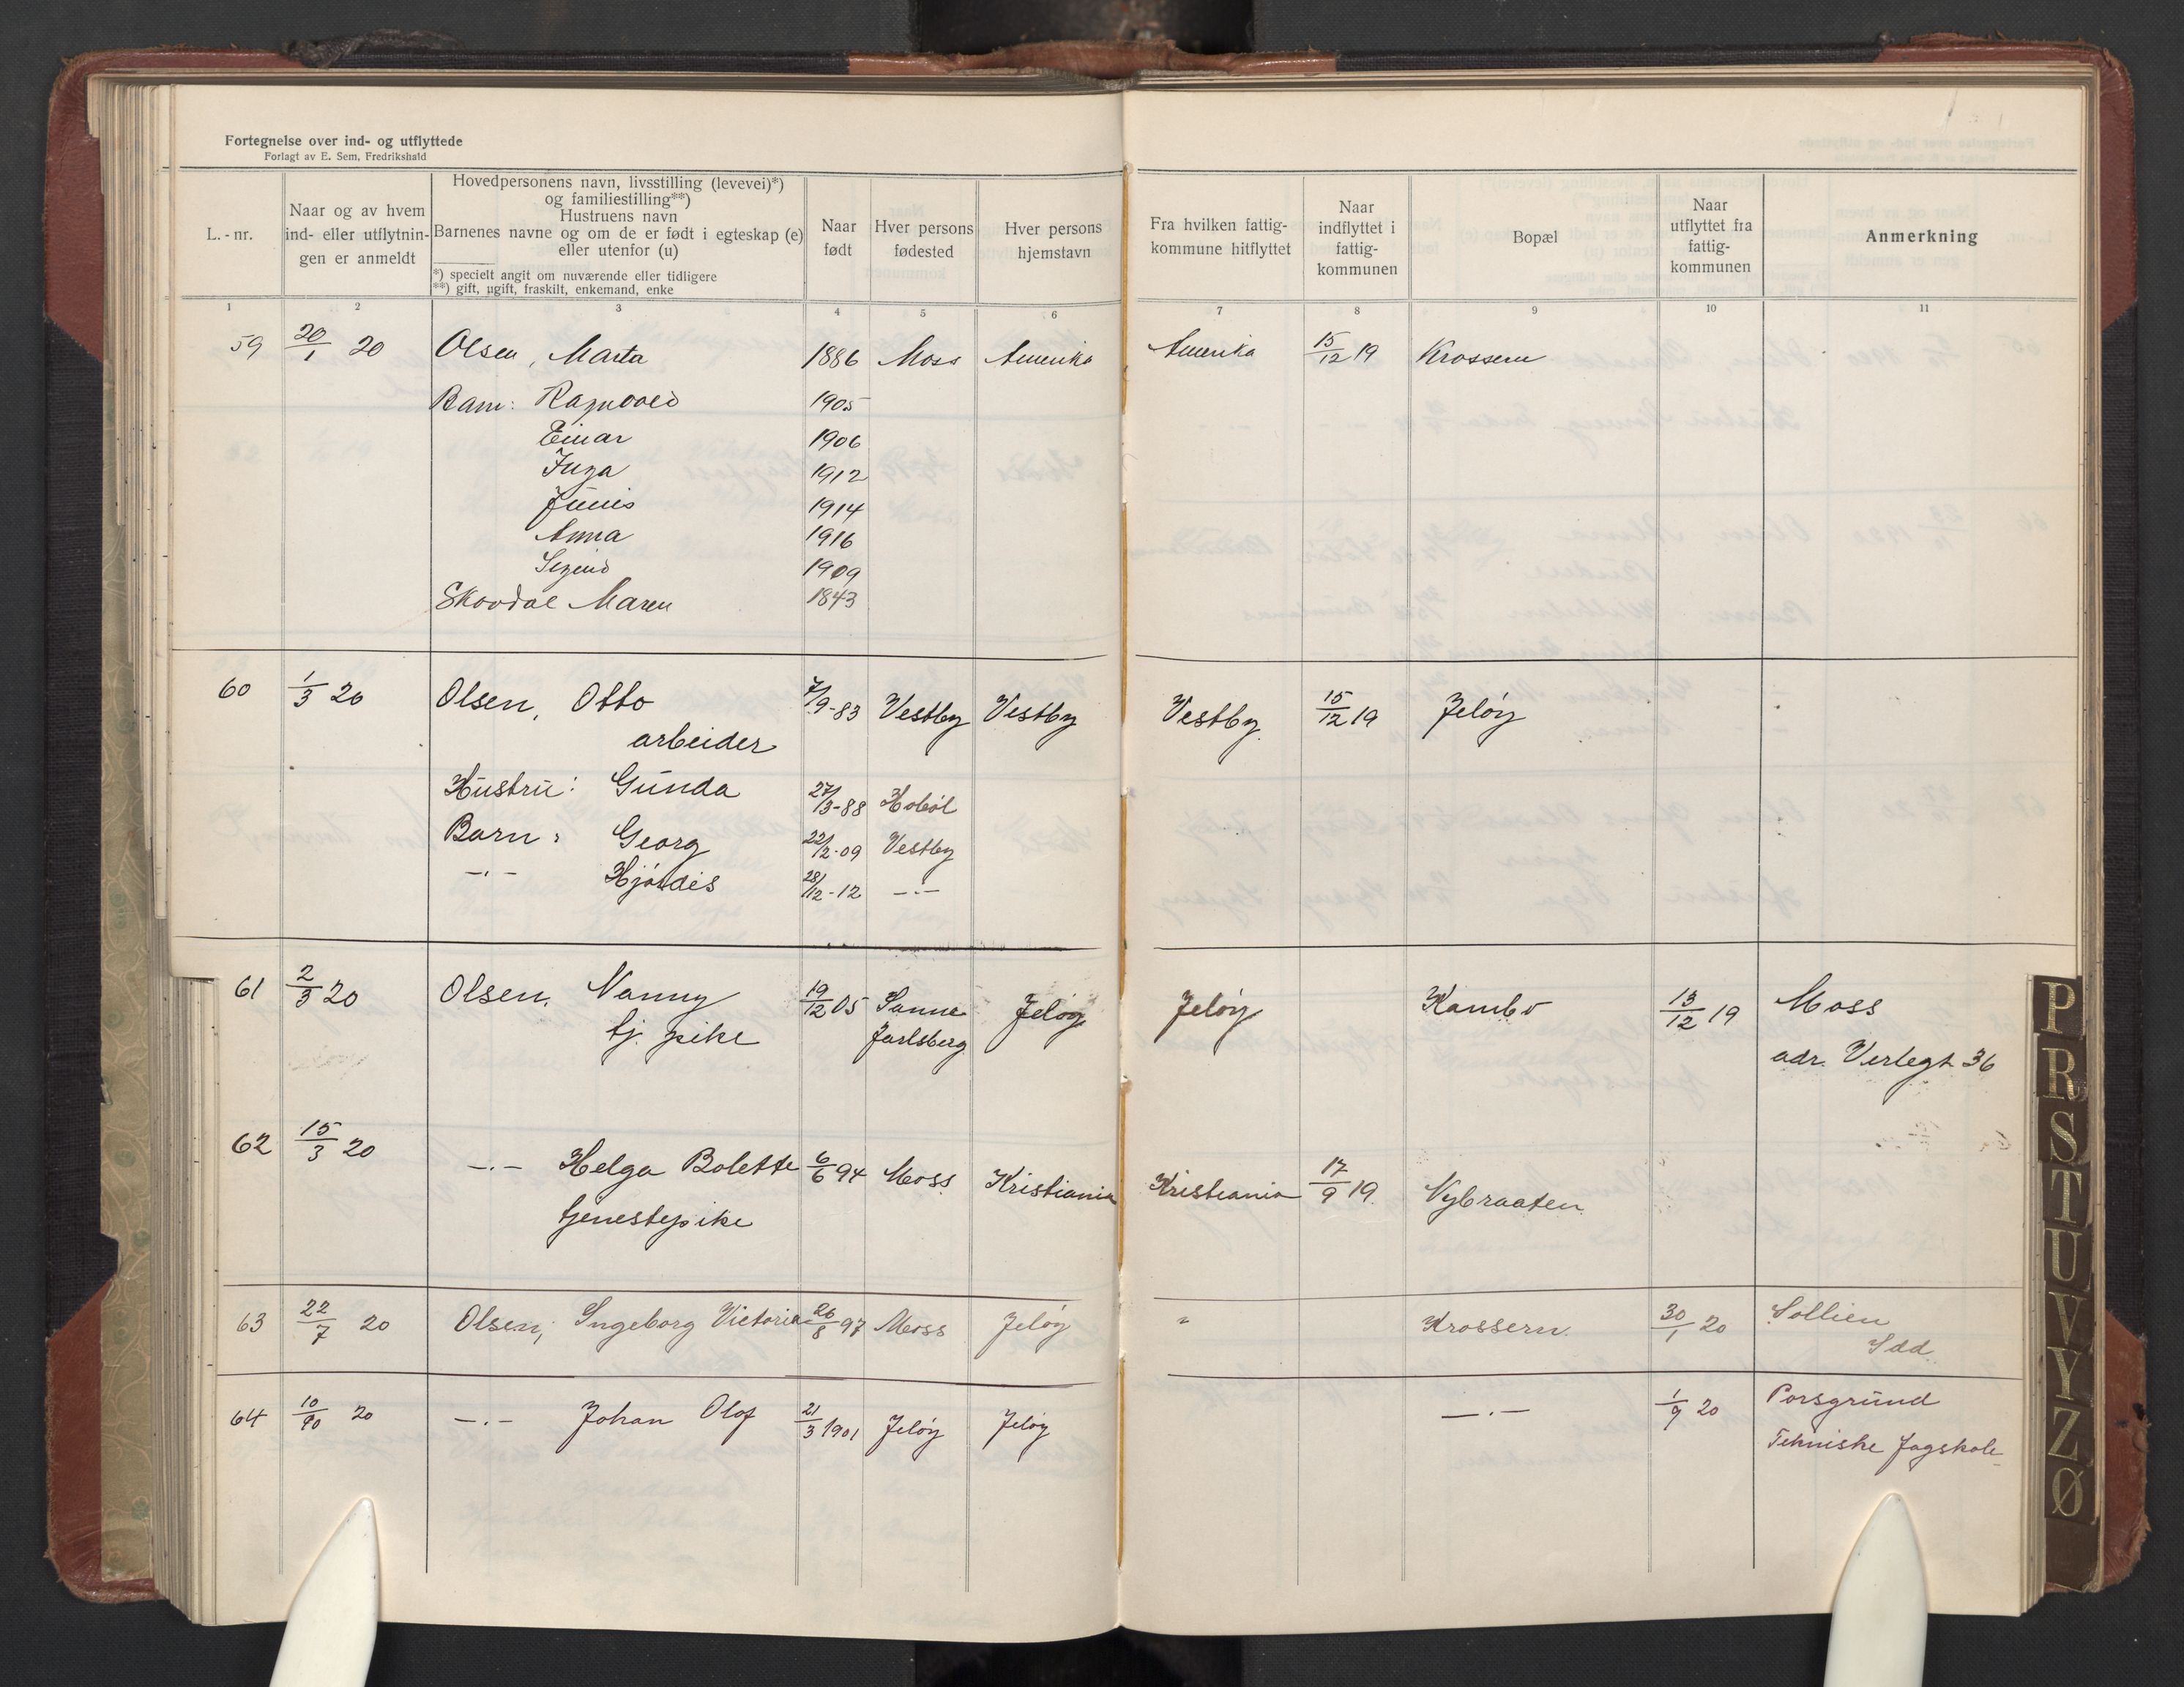 Fortegnelse over ind- og utflyttede
Forlagt av E. Sem, Fredrikshald
L.-nr.
Naar og av hvem
ind- eller utflytnin-
gen er anmeldt
Hovedpersonens navn, livsstilling (levevei)*)
og familiestilling**)
Hustruens navn
Barnenes navne og om de er født i egteskap (e)
eller utenfor (u)
*) specielt angit om nuværende eller tidligere
**) gift, ugift, fraskilt, enkemand, enke
Naar
født
Hver persons
fødested
Hver persons
hjemstavn
Fra hvilken fattig-
kommune hitflyttet
Naar
indflyttet i
fattig-
kommunen
Bopæl
Naar
utflyttet fra
fattig-
kommunen
Anmerkning
1 2 3 4 5 6 7 8 9 10 11
59 20/1 20 Olsen, Marta 1886 Moss Amerika Amerika 15/12 19 Krossern
Barn: Ragnvald 1905
Einar 1906
Inga 1912
1914
Anna 1916
Sigurd 1909
Skovdal Maren 1843
60 1/3 20 Olsen, Otto 7/9-83 Vestby Vestby Vestby 15/12 19 Jeløy
arbeider
Hustru: Gunda 27/3-88 Hobøl
Barn: Georg 22/2-09 Vestby
-"- Hjørdis 28/12-12 -"-
61 2/3 20 Olsen, Nanny 19/12 05 Sanne Jeløy Jeløy Kambo 13/12 19 Moss
tj. pike Jarlsberg adr. Verlegt 36
62 15/3 20 -"- Helga Bolette 6/6 94 Moss Kristiania Kristiania 17/9 19. Nybraaten
tjenestepike
63 22/7 20 Olsen, Ingeborg Victoria 26/8 97 Moss Jeløy " Krossern. 30/1 20 Sollien
Idd
64 10/10 20 -"- Johan Olof 21/3 1901 Jeløy Jeløy -"- 1/9 20 Porsgrund
Tekniske fagskole
P
R
S
T
U
V
Y
Z
Ø